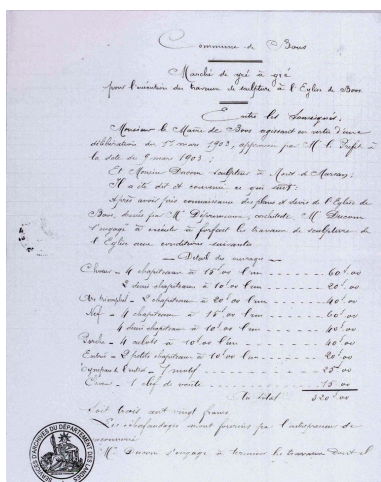 Commune de Bous
Marché de gré à gré
pour l'exécution des travaux de sculpture à l'Eglise de Bous.
Entre les soussignés:
Monsieur le Maire de Bous agissant en vertu d'une
délibération du 1er mars 1903, approuvée par M. le Préfet à
la date du 9 mars 1903;
Et Monsieur Ducom sculpteur à Mont de Marsan;
Il a été dit et convenu ce qui suit:
Après avoir pris connaissance des plans et devis de l'Eglise de
Bous, dressés par Mr architecte, Mr Ducom
s'engage à exécuter à forfait les travaux de sculpture de
l'Eglise aux conditions suivantes
— Détail des ouvrages —
Choeur - 4 chapiteaux à 15f00 l'un --- 60f.00
2 demi chapiteaux à 10f00 l'un --- 20f.00
Arc triomphal - 2 chapiteaux à 20f00 l'un --- 40f.00
Nef - 4 chapiteaux à 15f00 l'un --- 60f.00
4 demi chapiteaux à 10f00 l'un --- 40f.00
Porche - 4 à 10f00 l'un --- 40f.00
Entrée - 2 petits chapiteaux à 10f00 l'un --- 20f.00
Tympan de l'entrée - 1 motif --- 25f.00
1 clef de voûte --- 15f.00
Au total 320f00
Soit trois cent vingt francs
Les échafaudages seront fournis par l'entrepreneur de
maçonnerie
Mr Ducom s'engage à terminer les travaux dont il
SERVICE D'ARCHIVES DU DÉPARTEMENT DES LANDES